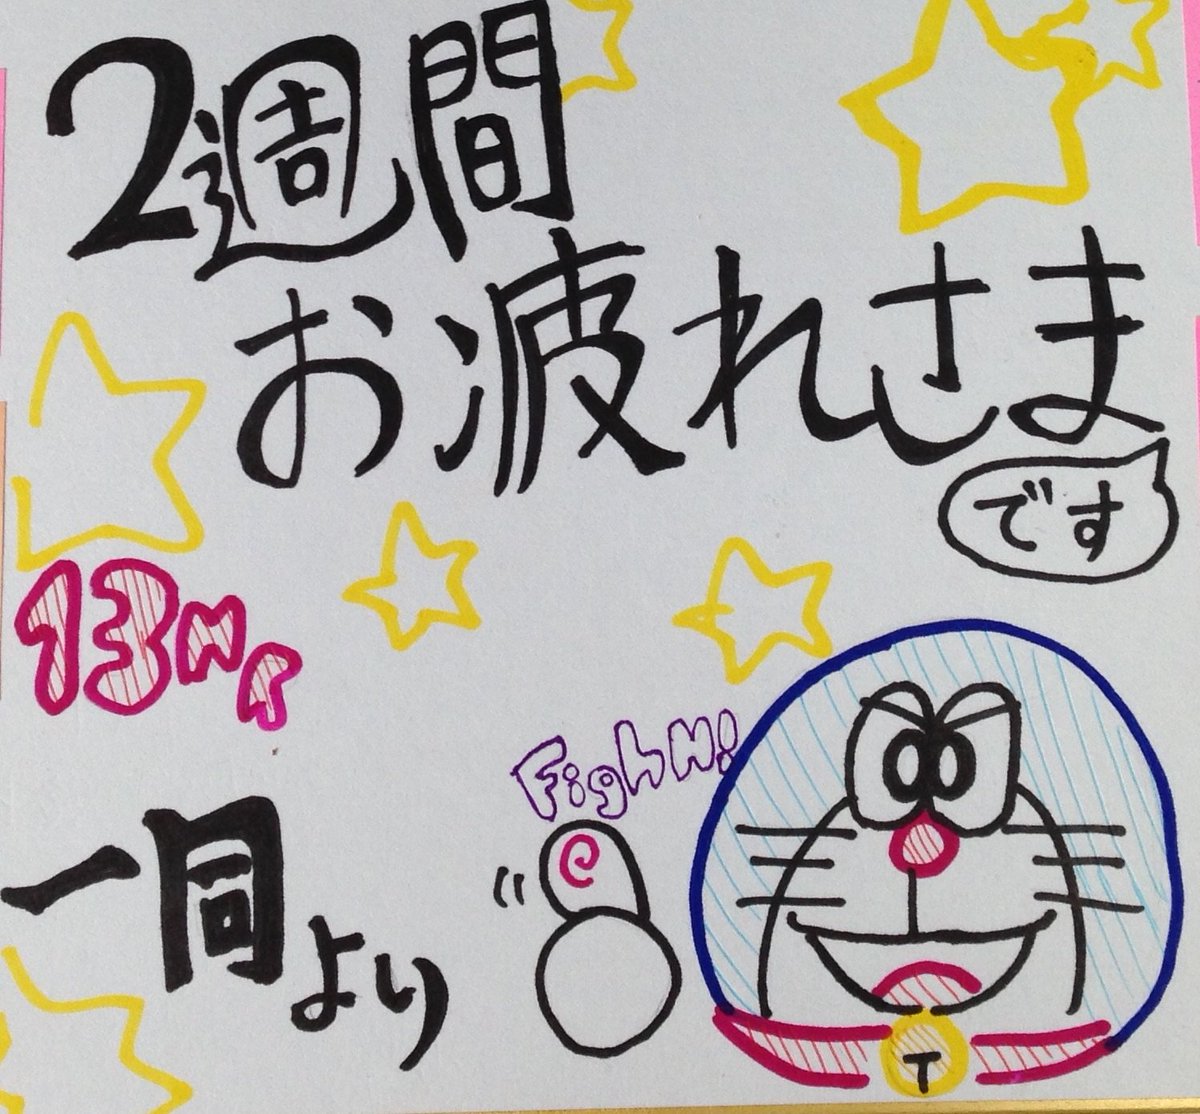 2週間
お疲れさま
です
13HR
一同より
Fighn!
T